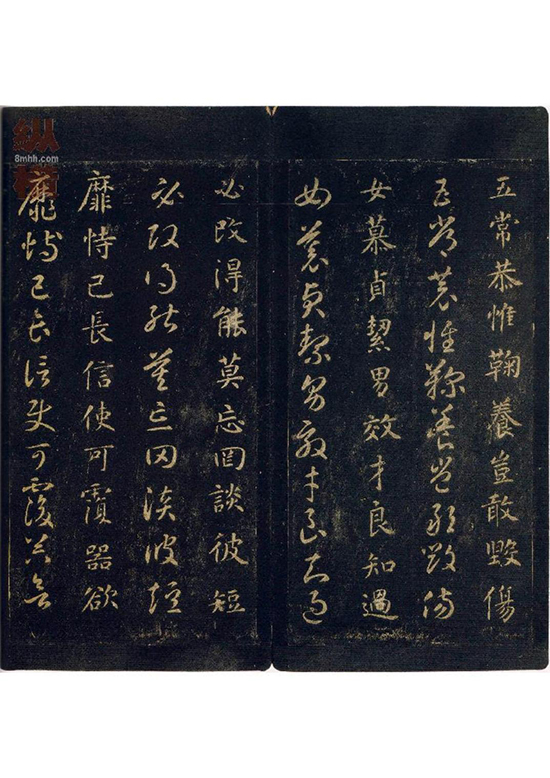 五常恭惟鞠養豈敢毀傷
五常恭惟鞠養豈敢毀傷
女慕貞絜男效才良知過
女慕貞絜男效才良知過
必改得能莫忘罔談彼短
必改得能莫忘罔談彼短
靡恃己長信使可覆器欲
靡恃己長信使可覆器欲
纵
8mhh.com